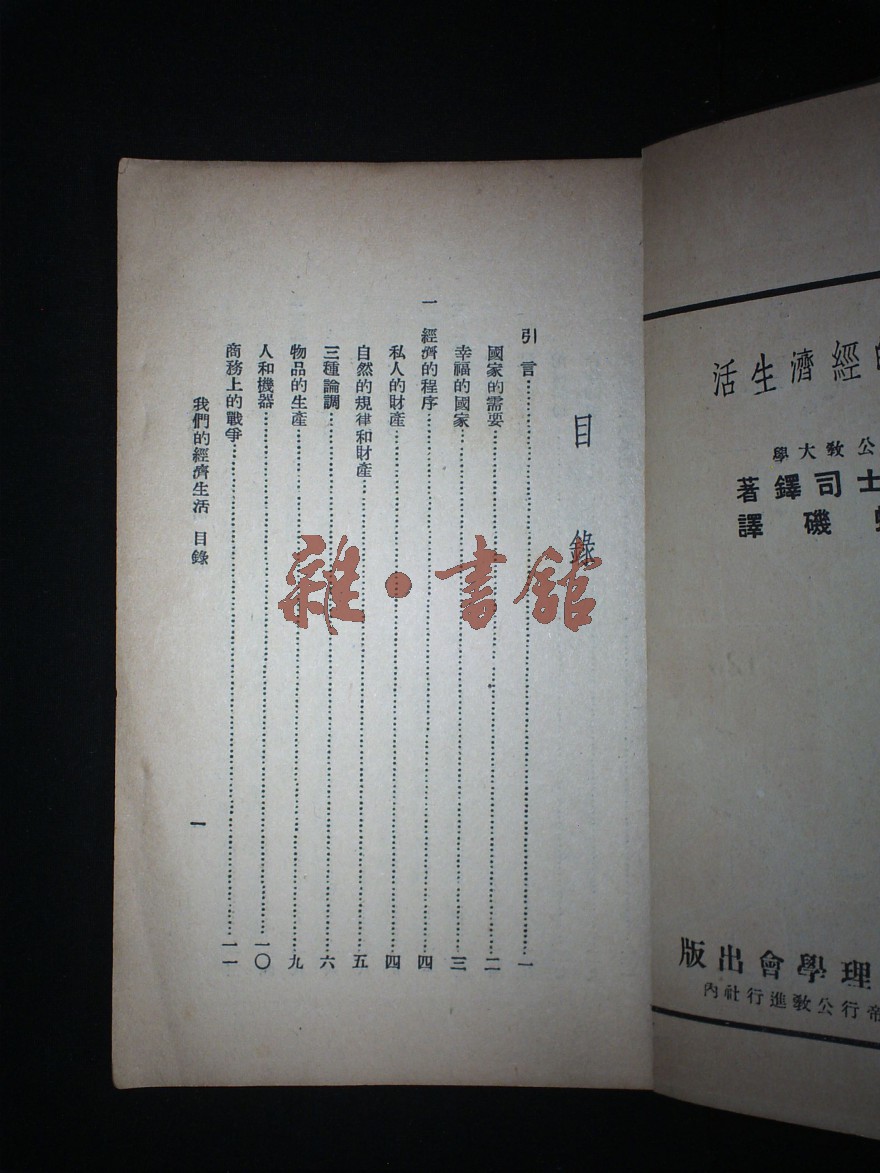 目錄
引言……一
國家的需要……二
幸福的國家……三
一 經濟的程序……四
私人的財產……四
自然的規律和財產……五
三種論調……六
物品的生產……九
人和機器……一〇
商務上的戰爭……一一
我們的經濟生活 目錄
一
雜·書館
的經濟生活
公教大學
士司鐸著
磯譯
理學會出版
帝行公教進行社內